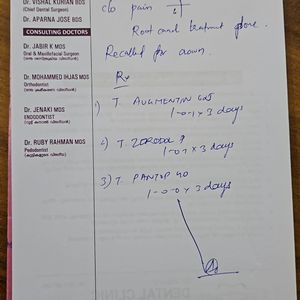 Dr. VISHAL KURIAN BDS
(Chief Dental Surgeon)
Dr. APARNA JOSE BDS
CONSULTING DOCTORS
Dr. JABIR K MDS
Oral & Maxillofacial Surgeon
Dr. MOHAMMED IHJAS MDS
Orthodontist
Dr. JENAKI MDS
ENDODONTIST
Dr. RUBY RAHMAN MDS
Pedodontist
c/o pain 6
Root canal treatment done.
Recalled for crown.
Rx
1) T. AUGMENTIN 625
1-0-1 x 3 days
2) T. ZERODOL P
1-0-1 x 3 days
3) T. PANTOP 40
1-0-0 x 3 days
DENTAL CLINIC